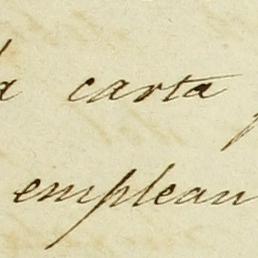 carta
emplean